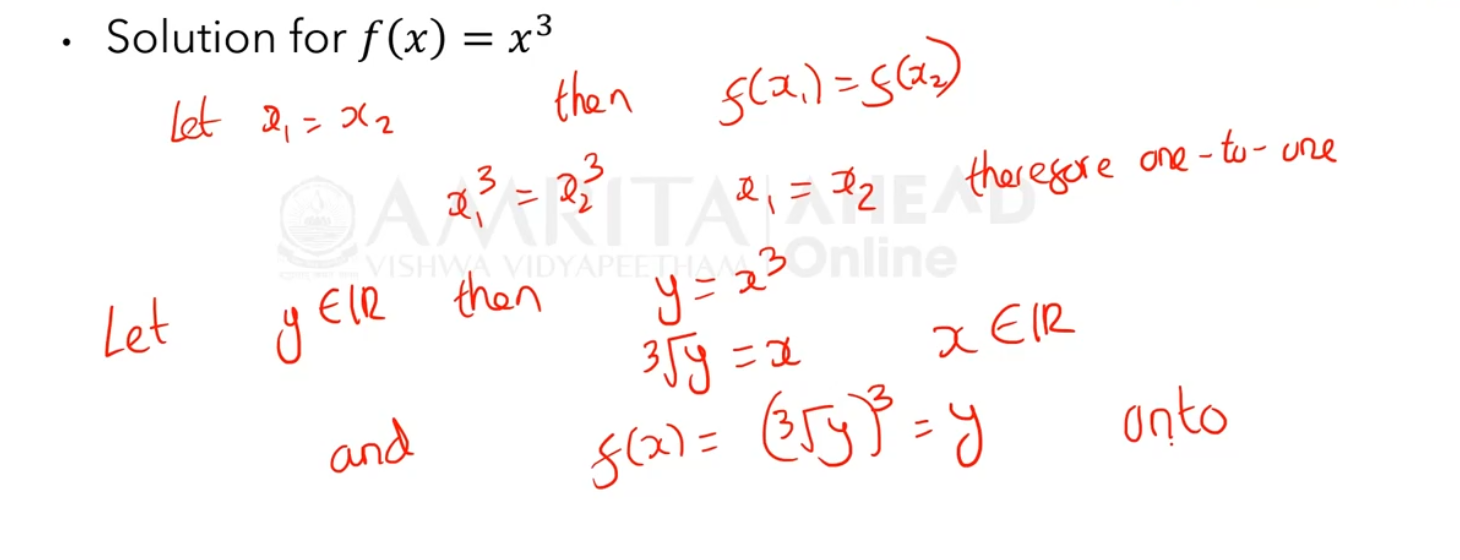 • Solution for f(x) = x³
Let x₁ = x₂ then f(x₁) = f(x₂)
x₁³ = x₂³ x₁ = x₂ therefore one-to-one
AMRITA AHEAD
VISHWA VIDYAPEETHAM Online
Let y ∈ ℝ then y = x³
³√y = x x ∈ ℝ
and f(x) = (³√y)³ = y onto